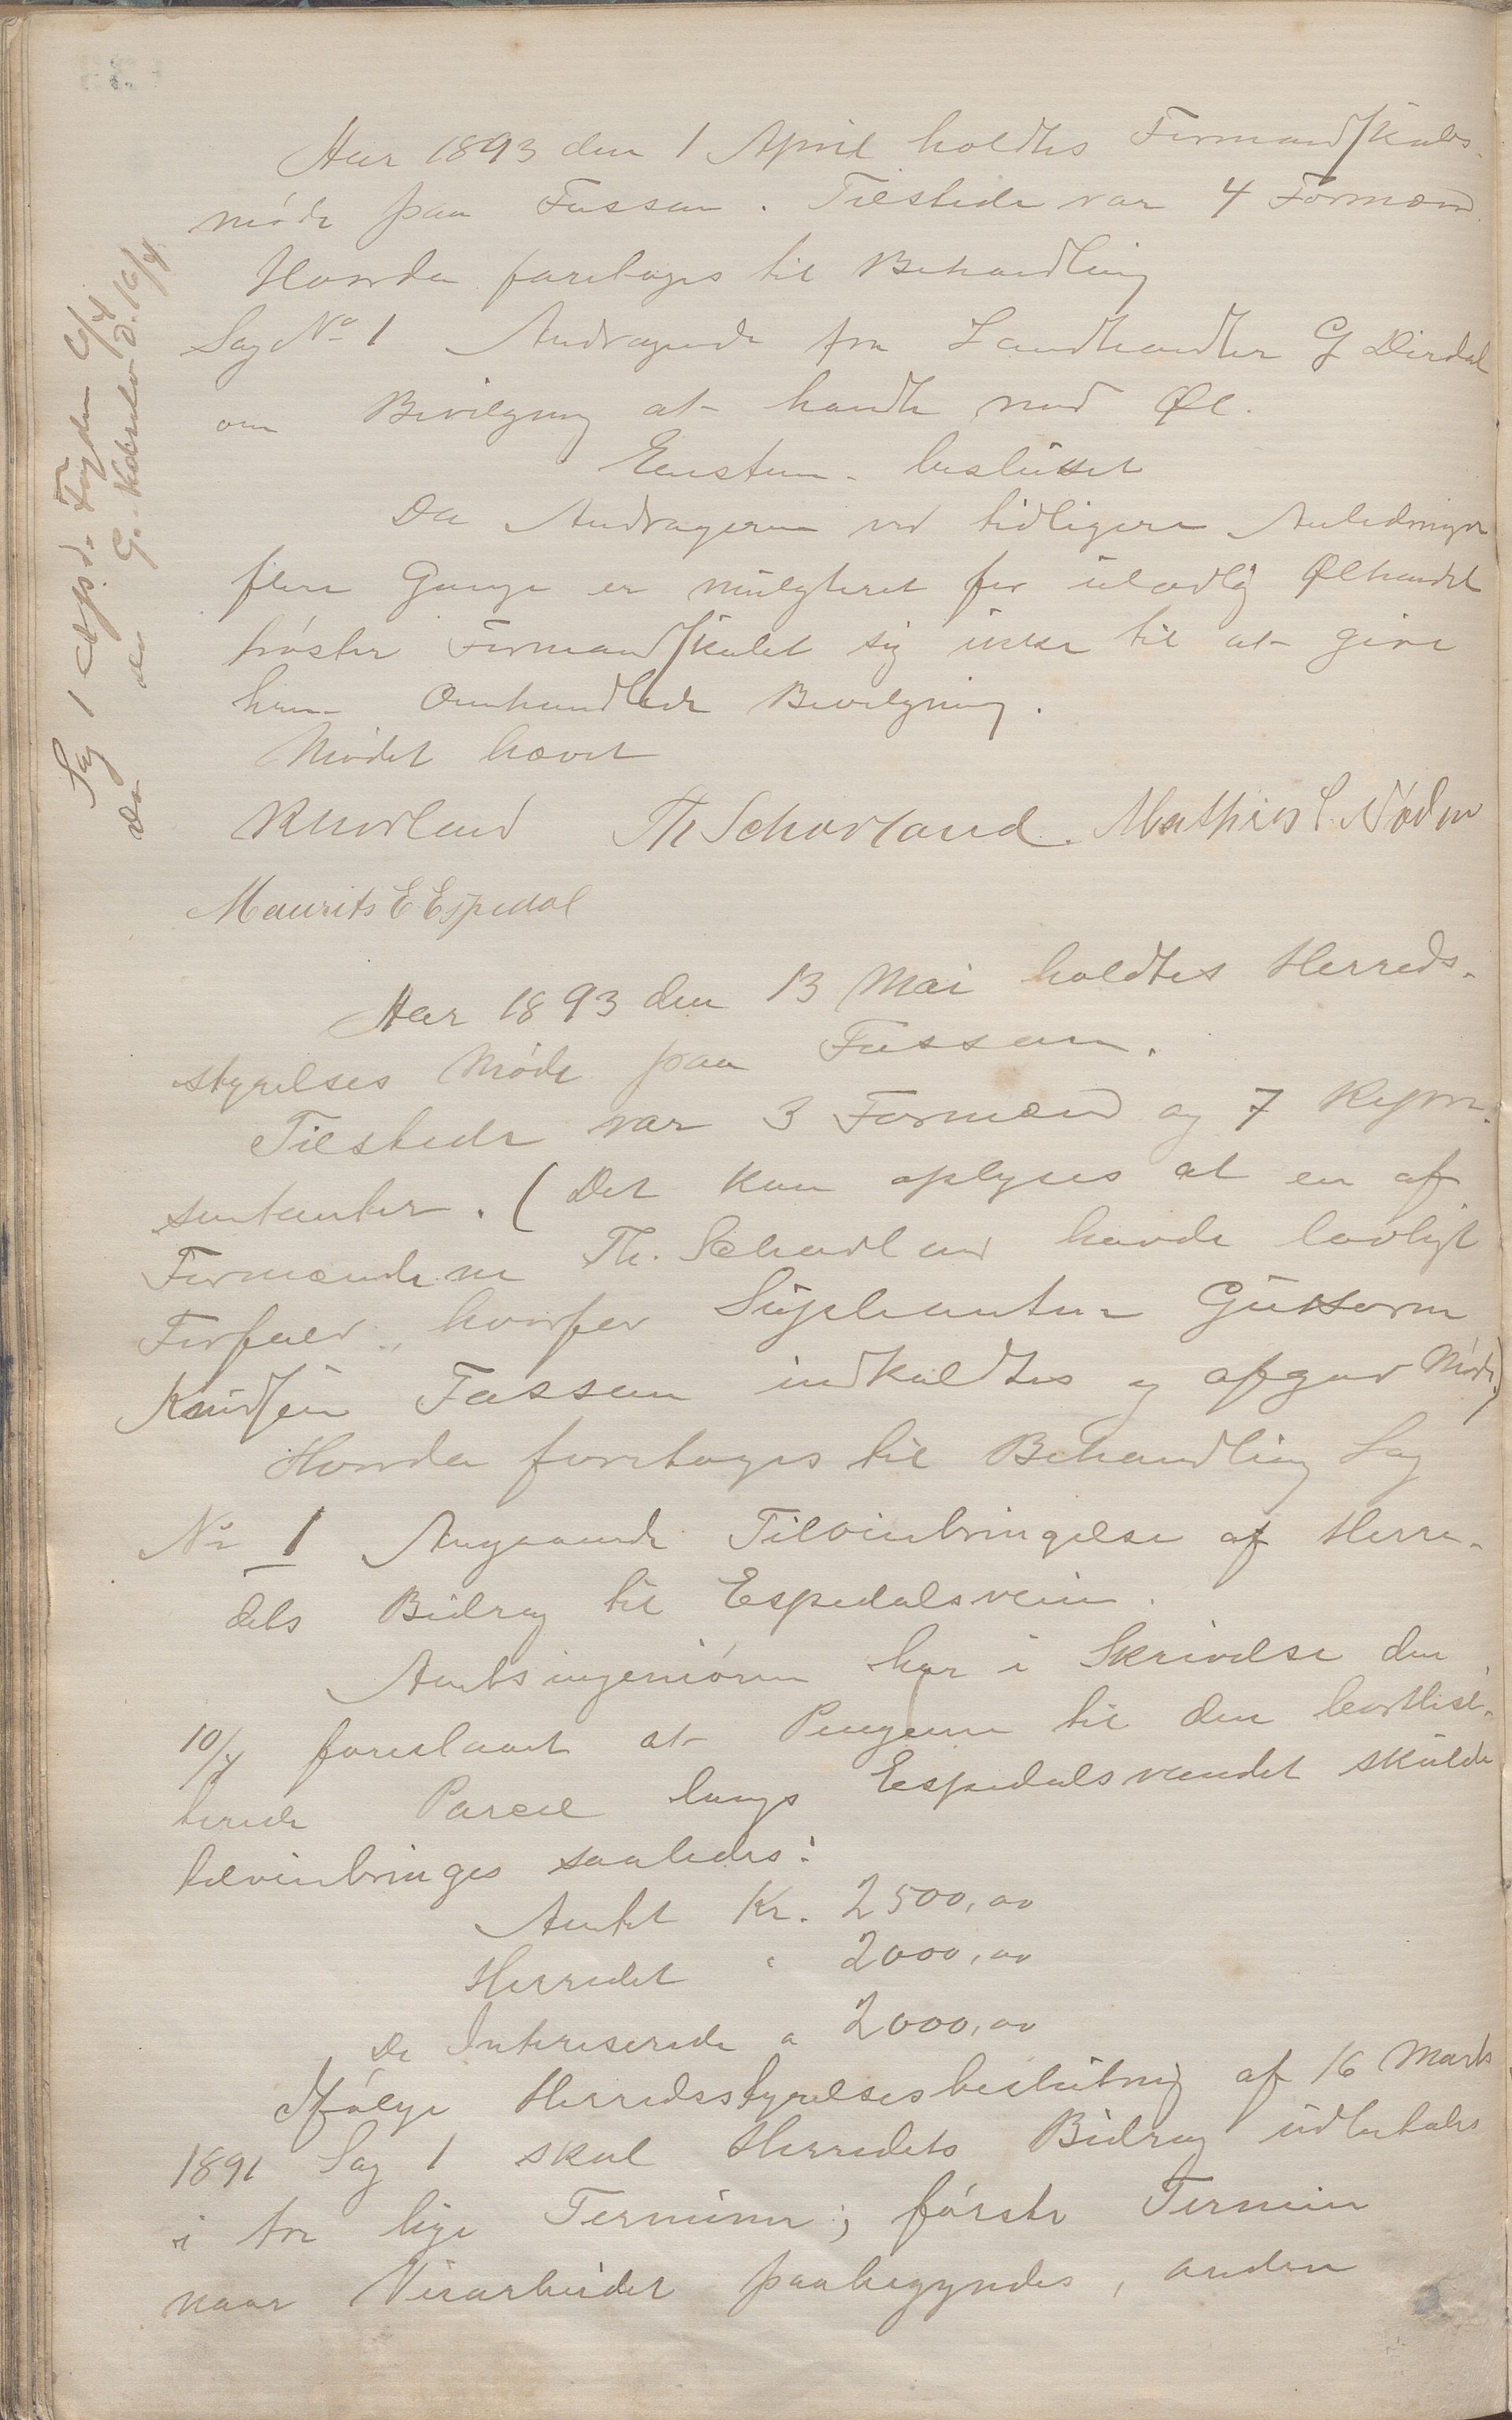 Aar 1893 den 1 April holdtes Formandskabs-
møde paa Fossan. Tilstede var 4 Formænd.
Hvorda foretoges til Behandling
Sag No 1 Andragende fra Landhandler G Dirdal
om Bevilgning at handle med Øl.
Enstem. besluttet
Da Andrageren ved tidligere Anledninger
flere Gange er mulgteret for ulovlig Ølhandel
trøster Formandskabet sig ikke til at give
ham Omhandlede Bevilgning.
Mødet hævet
Th Schavland. Mathias
Maurits E Espedal
Sag 1 Exp. d. Fogden 6/4
Do do G. 16/4
Aar 1893 den 13 Mai holdtes Herreds-
styrelses Møde paa Fossan.
Tilstede var 3 Formænd og 7 Repræ-
sentanter. (Det kan oplyses at en af
Formændene Th. Schavland havde lovligt
Forfald, hvorfor Supleanten Guttorm
Knudsen Fossan indkaldtes og afgav Møde)
Hvorda foretoges til Behandling Sag
No 1 Angaaende Tilveiebringelse af Herre-
dets Bidrag til Espedalsveien.
Amtsingeniøren har i Skrivelse den
10/4 foreslaaet at Pengene til den bortlici-
terede Parcel langs Espedalsvandet skulde
tilveiebringes saaledes:
Amtet Kr. 2500,00
Herredet " 2000,00
De Intereserede " 2000,00
Ifølge Herredsstyrelsesbeslutning af 16 Marts
1891 Sag 1 skal Herredets Bidrag udbetales
i tre lige Terminer; første Termin
naar Veiarbeidet paabegyndes, anden